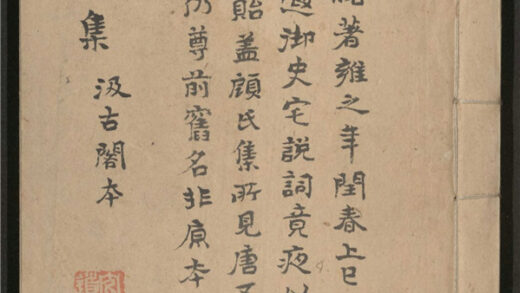 著雍之年閏春上巳
御史宅説詞竟夜
貽蓋顧氏集所見唐
尊前舊名非原本
集
汲古閣本